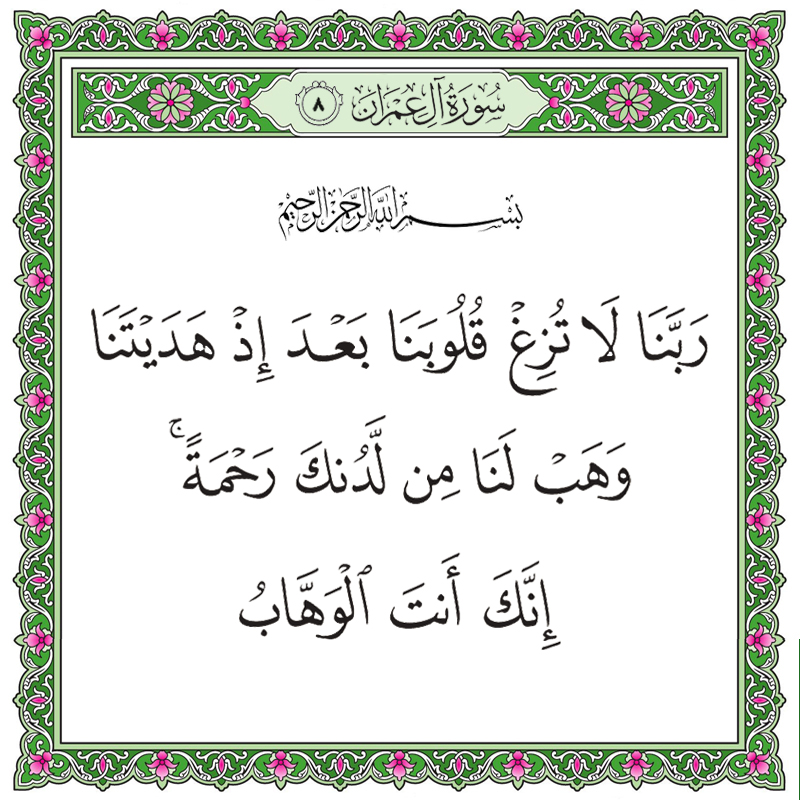 سُورَةُ آلِ عِمْرَان ٨
بسم الله الرحمن الرحيم
رَبَّنَا لَا تُزِغْ قُلُوبَنَا بَعْدَ إِذْ هَدَيْتَنَا
وَهَبْ لَنَا مِن لَّدُنكَ رَحْمَةً ۚ
إِنَّكَ أَنتَ ٱلْوَهَّابُ